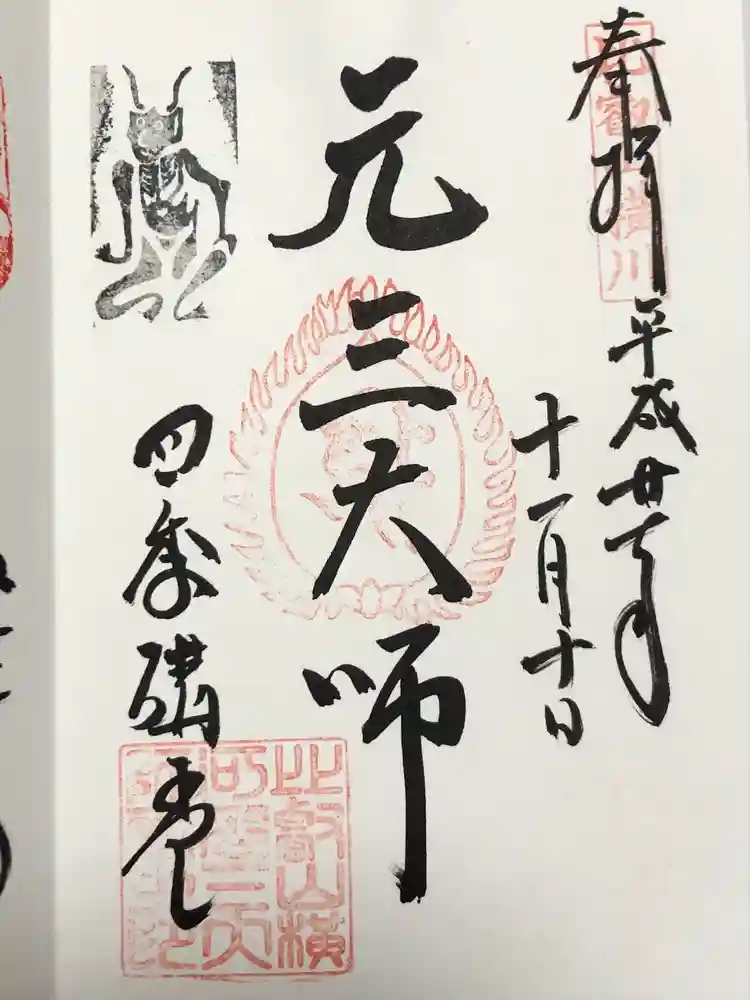 奉拝
比叡山横川
平成廿七年
十一月十日
元三大師
四季講堂
比叡山横